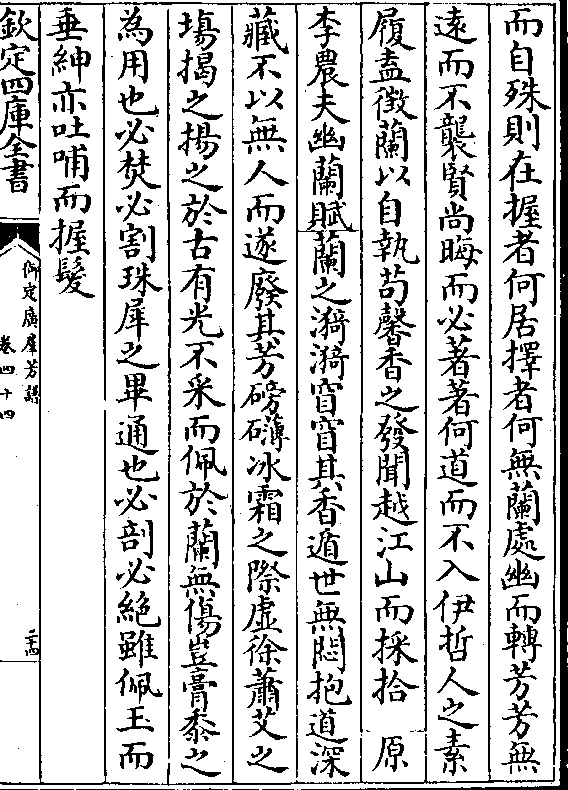 而自殊則在握者何居擇者何無蘭處幽而轉芳芳無
遠而不襲賢尚晦而必著著何道而不入伊哲人之素
履盍徴蘭以自執苟馨香之發聞越江山而採拾　原
李農夫幽蘭賦蘭之漪漪窅窅其香遁世無悶抱道深
藏不以無人而遂廢其芳磅礴冰霜之際虛徐蕭艾之
場揭之揚之於古有光不采而佩於蘭無傷豈膏黍之
為用也必焚必割珠犀之畢通也必剖必絕雖佩玉而
垂紳亦吐哺而握髮
欽定四庫全書
御定廣羣芳譜
卷四十四
二十四